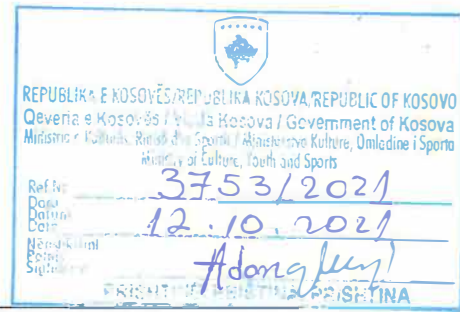 REPUBLIKA E KOSOVËS/REPUBLIKA KOSOVA/REPUBLIC OF KOSOVO
Qeveria e Kosovës / Vlada Kosova / Government of Kosova
Ministria e Kulturës, Rinisë dhe Sportit / Ministarstvo Kulture, Omladine i Sporta
Ministry of Culture, Youth and Sports
Ref.Nr 3753/2021
Data
Datum
Date 12.10.2021
Nënshkrimi
PRISHTINË/PRISTINA/PRISHTINA